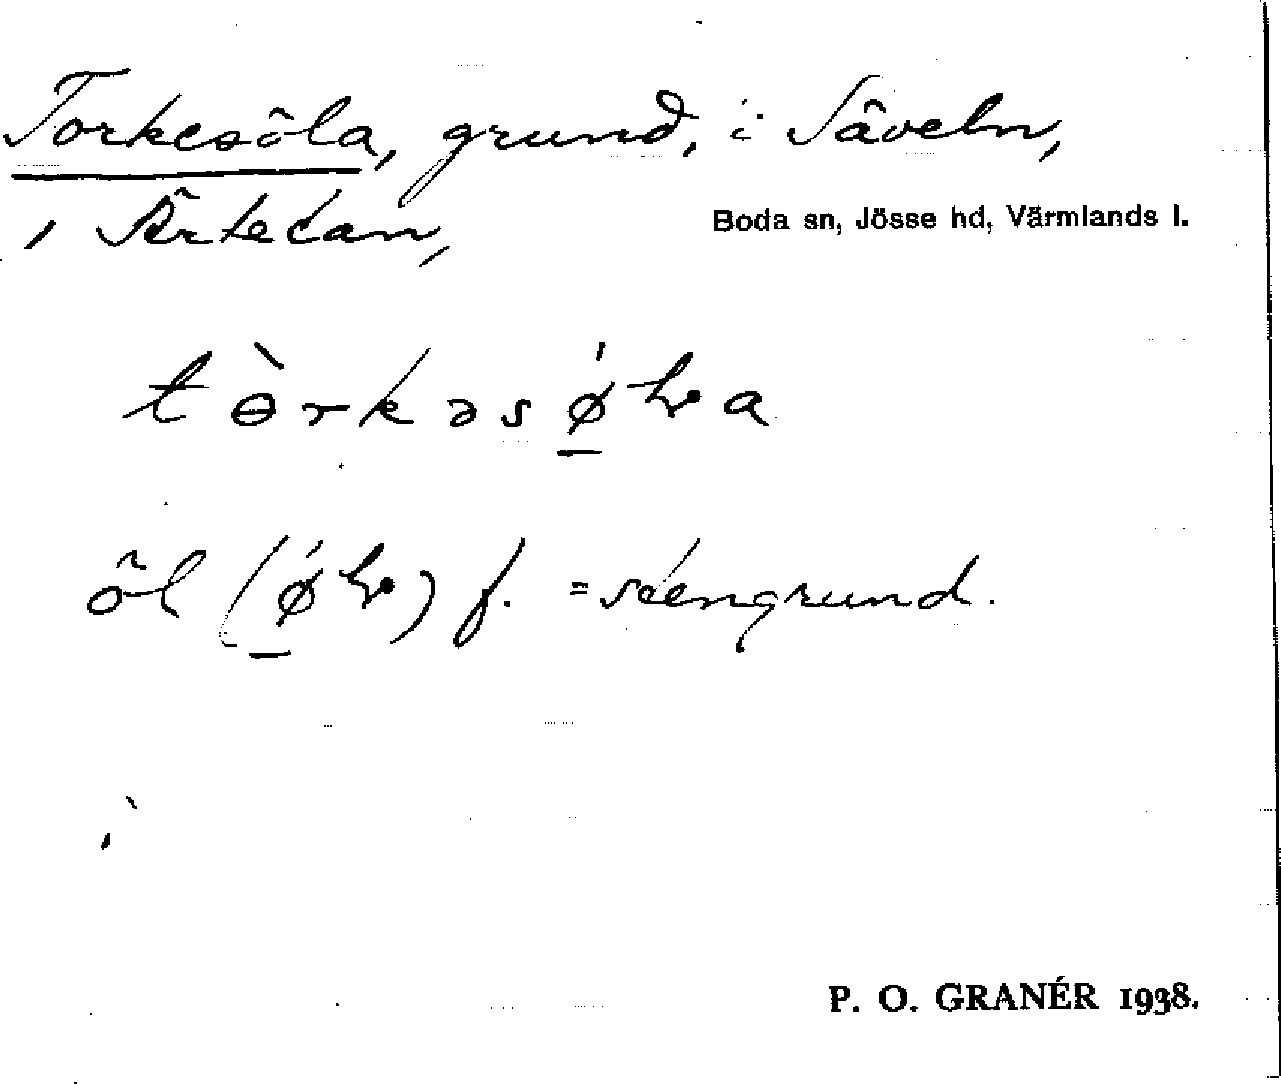 Torkesöla, grund, i Säveln,
i Ärtetan,
Boda sn, Jösse hd, Värmlands l.
öl ( ) f. = stengrund.
P. O. GRANÉR 1938.